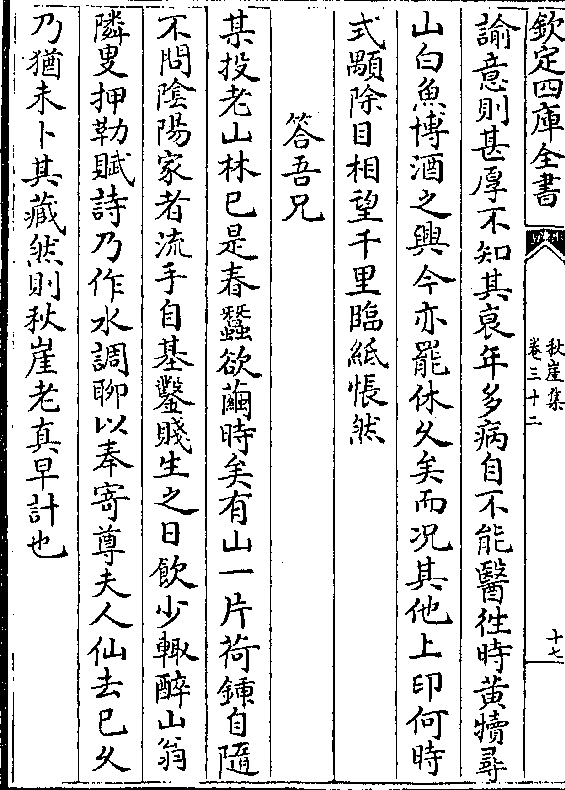 欽定四庫全書
秋崖集
卷三十二
十七
諭意則甚厚不知其衰年多病自不能醫徃時黄犢尋
山白魚博酒之興今亦罷休久矣而况其他上印何時
式顒除目相望千里臨紙悵然
答吾兄
某投老山林已是春蠶欲繭時矣有山一片荷鍤自隨
不問陰陽家者流手自基鑿賤生之日飲少輙醉山翁
隣叟押勒賦詩乃作水調聊以奉寄尊夫人仙去已久
乃猶未卜其藏然則秋崖老真早計也